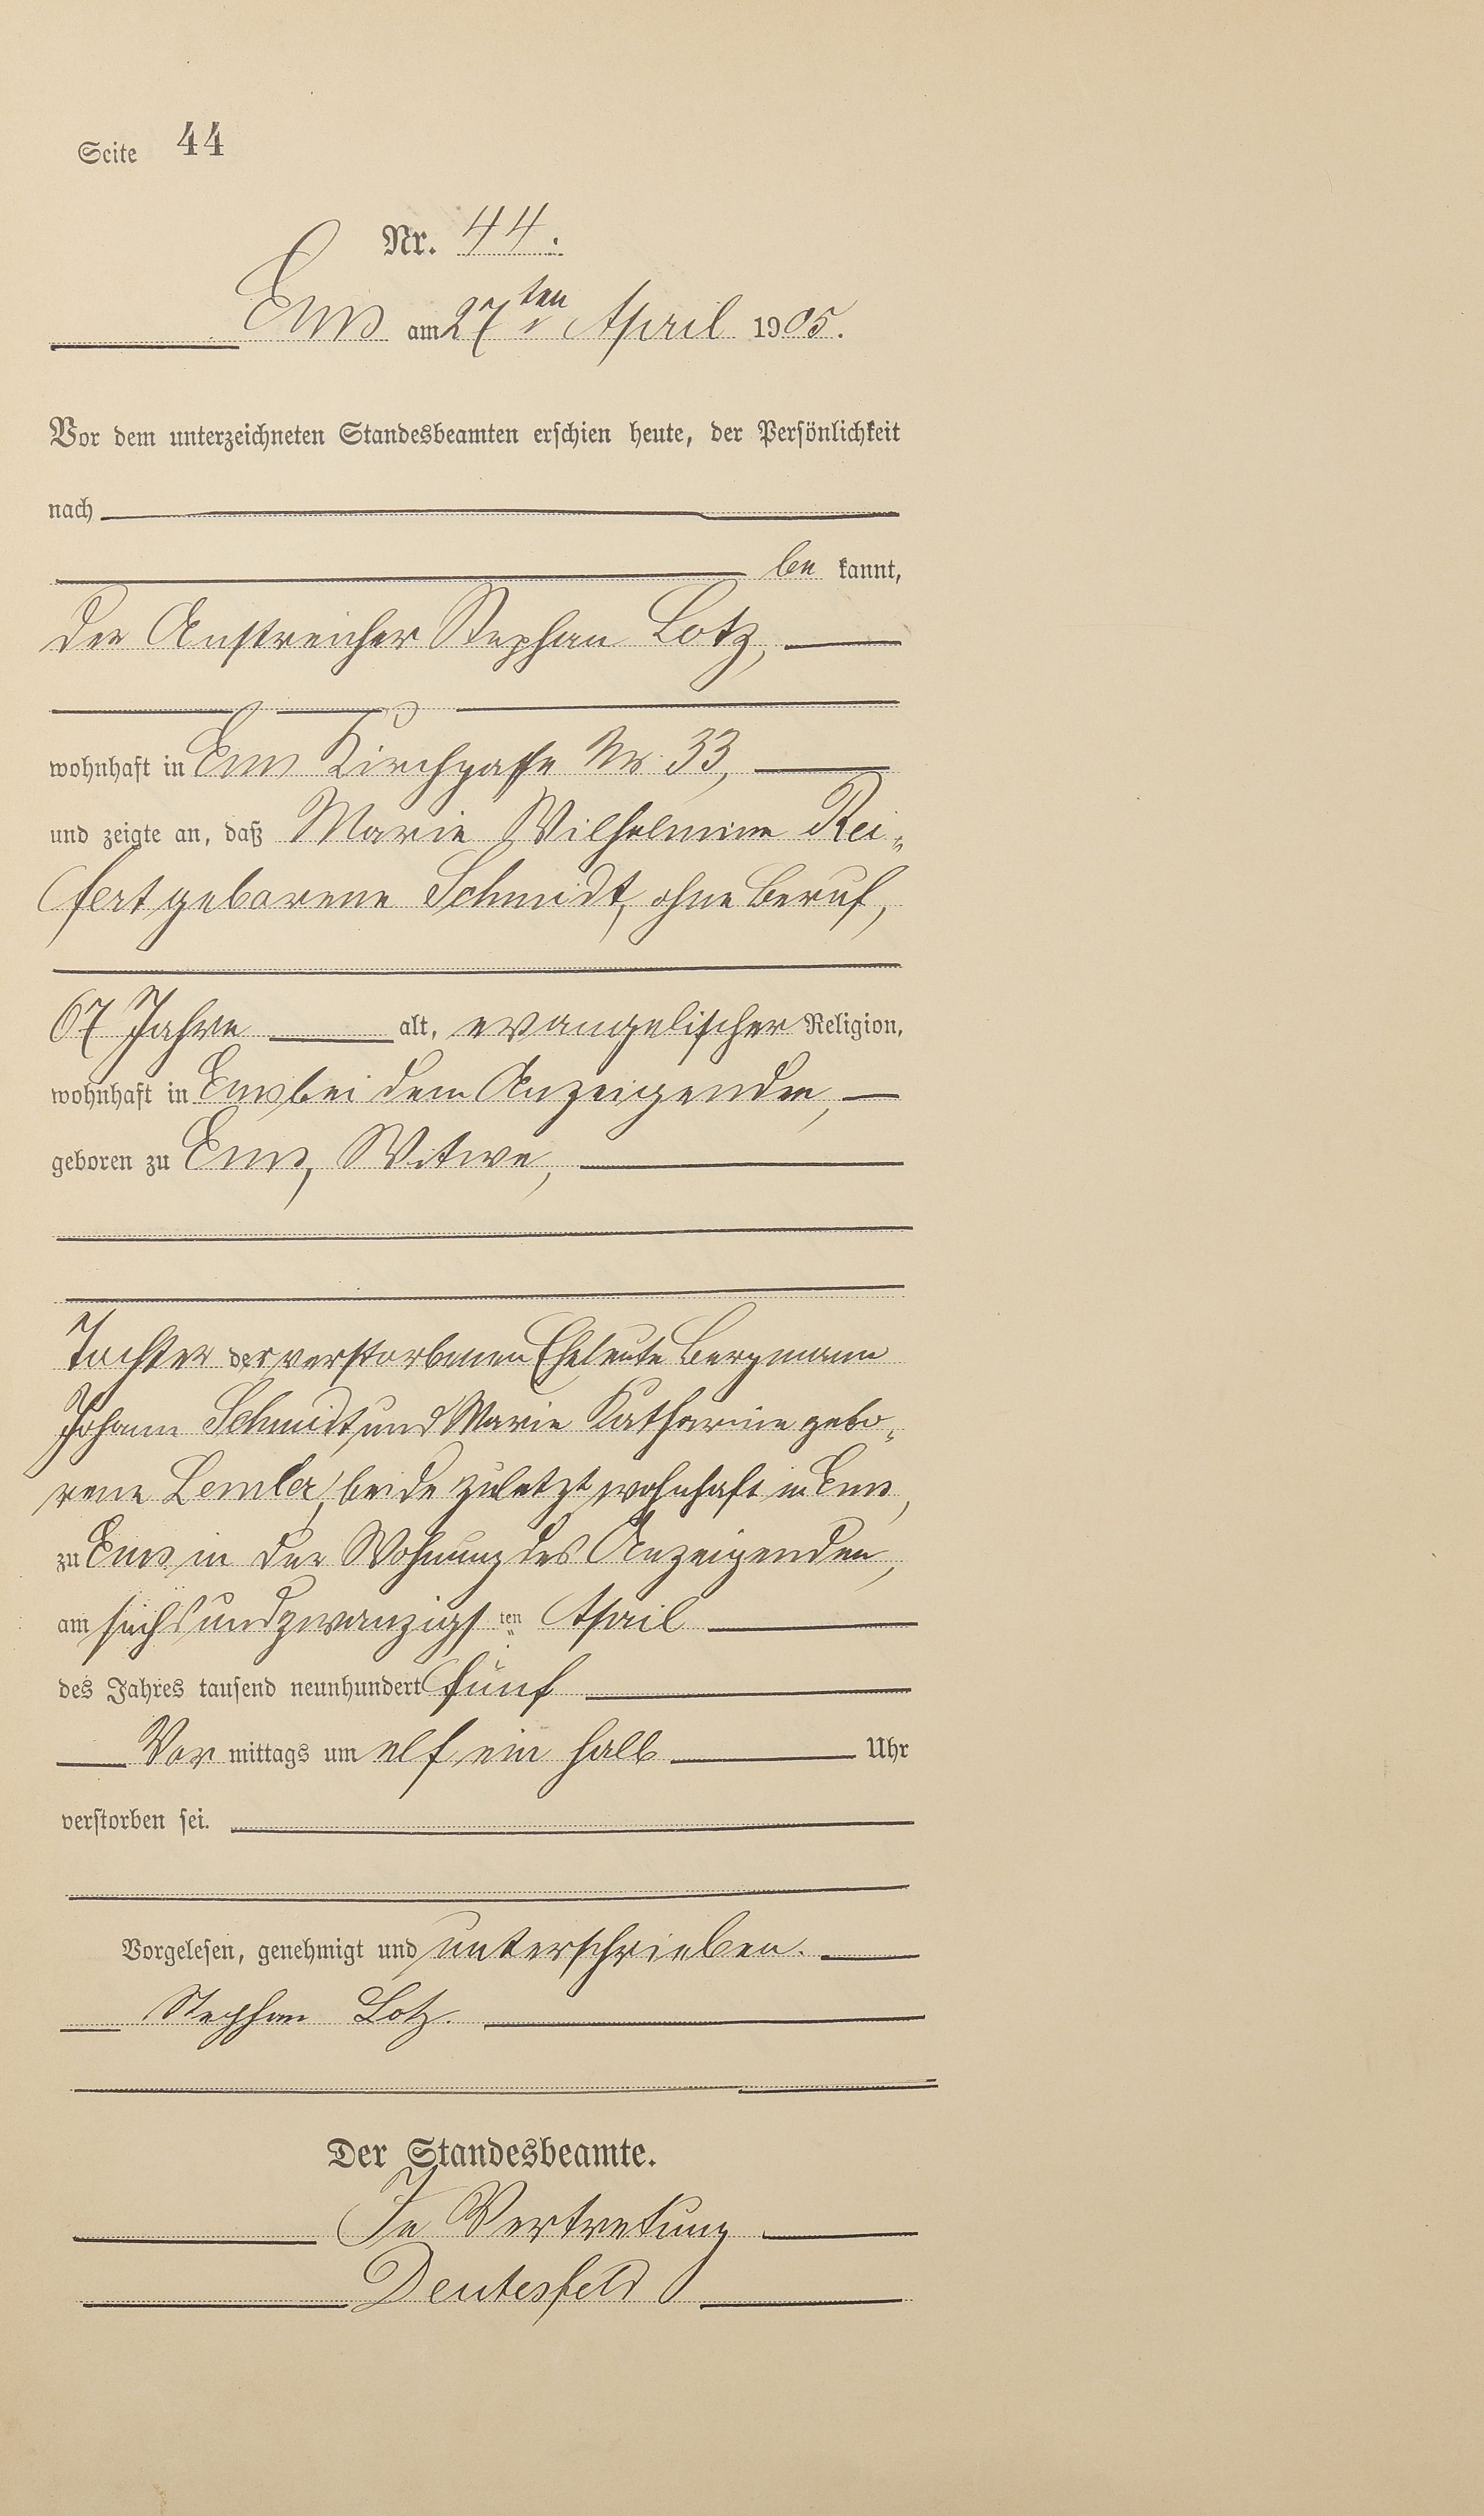 Seite 44
Nr. 44.
Ems am 27ten April 1905.
Vor dem unterzeichneten Standesbeamten erschien heute, der Persönlichkeit
nach
be kannt,
der Anstreicher Stephan Lotz,
wohnhaft in Ems Kirchgasse Nr. 33,
und zeigte an, daß Marie Wilhelmine Rei-
fert geborene Schmidt, ohne Beruf,
67 Jahre alt, evangelischer Religion,
wohnhaft in Ems bei dem Anzeigenden,
geboren zu Ems, Witwe,
Tochter der verstorbenen Eheleute Bergmann
Johann Schmidt und Marie Katharine gebo-
rene Lemler, beide zuletzt wohnhaft in Ems,
zu Ems in der Wohnung des Anzeigenden,
am sechsundzwanzigs ten April
des Jahres tausend neunhundert fünf
Vor mittags um elf ein halb Uhr
verstorben sei.
Vorgelesen, genehmigt und unterschrieben.
Stephan Lotz.
Der Standesbeamte.
In Vertretung
Deutesfeld